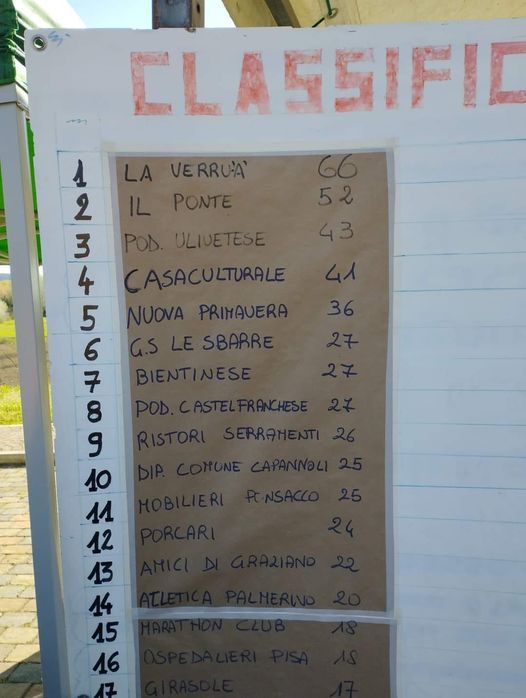 CLASSIFIC
1 LA VERRU'A' 66
2 IL PONTE 52
3 POD. ULIVETESE 43
4 CASACULTURALE 41
5 NUOVA PRIMAVERA 36
6 G.S LE SBARRE 27
7 BIENTINESE 27
8 POD. CASTELFRANCHESE 27
9 RISTORI SERRAMENTI 26
10 DIP. COMUNE CAPANNOLI 25
11 MOBILIERI PONSACCO 25
12 PORCARI 24
13 AMICI DI GRAZIANO 22
14 ATLETICA PALMERINO 20
15 MARATHON CLUB 18
16 OSPEDALIERI PISA 18
17 GIRASOLE 17